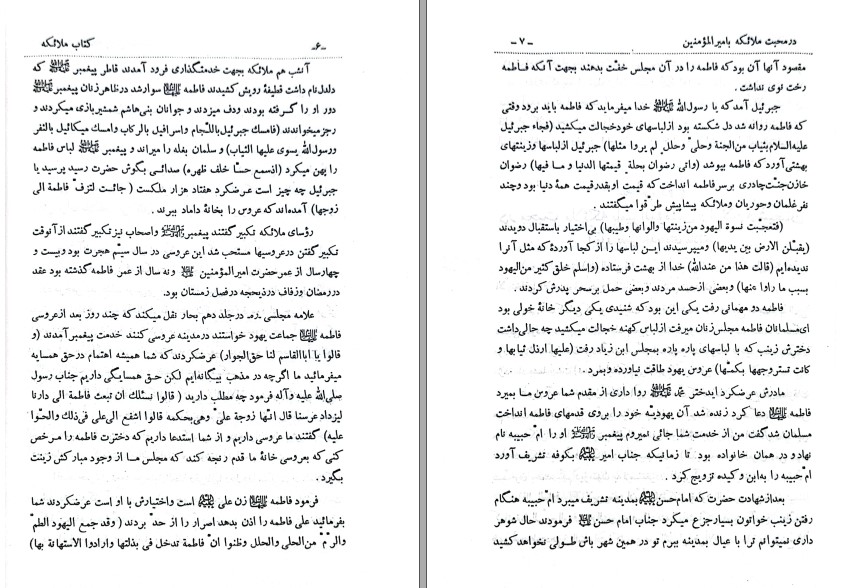 -۶-
کتاب ملائکه
آنشب هم ملائکه بجهت خدمتگذاری فرود آمدند قاطر پیغمبر ﷺ که
دلدل نام داشت قطیفهٔ رویش کشیدند فاطمه سوارشد درظاهر زنان پیغمبر ﷺ
دور او را گرفته بودند ودف میزدند و جوانان بنی‌هاشم شمشیربازی میکردند و
رجز میخواندند (فامسك جبرئیل باللّجام واسرافیل بالرکاب وامسك میکائیل بالثفر
ورسول‌الله یسوی علیها الثیاب) و سلمان بغله را میراند و پیغمبر ﷺ لباس فاطمه
را پهن میکرد (اذسمع حسّاً خلف ظهره) صدائی بگوش حضرت رسید پرسید یا
جبرئیل چه چیز است عرضکرد هفتاد هزار ملکست ( جائت لتزفّ فاطمة الی
زوجها) آمده‌اند که عروس را بخانهٔ داماد ببرند .
رؤسای ملائکه تکبیر گفتند پیغمبر ﷺ واصحاب نیز تکبیر گفتند از آنوقت
تکبیر گفتن درعروسیها مستحب شد این عروسی در سال سیّم هجرت بود وبیست و
چهارسال از عمر حضرت امیرالمؤمنین و نه سال از عمر فاطمه گذشته بود عقد
دررمضان و زفاف درذیحجه درفصل زمستان بود.
علامه مجلسی درجلد دهم بحار نقل میکند که چند روز بعد ازعروسی
فاطمه جماعت یهود خواستند درمدینه عروسی کنند خدمت پیغمبر آمدند (و
قالوا یا اباالقاسم لنا حق الجوار) عرضکردند که شما همیشه اهتمام درحق همسایه
میفرمائید ما اگرچه در مذهب بیگانه‌ایم لکن حق همسایگی داریم جناب رسول
صلی‌الله علیه وآله فرمود چه مطلب دارید ( قالوا نسئلك ان تبعث فاطمة الی دارنا
لیزداد عرسنا قال انّها زوجة علیّ وهی بحکمه قالوا اشفع الی علی فی‌ذلك والحّوا
علیه) گفتند ما عروسی داریم و از شما استدعا داریم که دخترت فاطمه را مرخص
کنی که بعروسی خانهٔ ما قدم رنجه کند که مجلس مـا از وجود مبارکش زینت
بگیرد .
فرمود فاطمه زن علی است واختیارش با او است عرضکردند شما
بفرمائید علی فاطمه را اذن بدهد اصرار را از حدّ بردند ( وقد جمع الیهود الطمّ
والرّمّ من الحلی والحلل وظنوا انّ فاطمة تدخل فی بذلتها وارادوا الاستهانة بها)
درمحبت ملائکه بامیرالمؤمنین
-۷-
مقصود آنها آن بود که فاطمه را در آن مجلس خفّت بدهند بجهت آنکه فـاطمه
رخت نوی نداشت .
جبرئیل آمد که یا رسول‌الله ﷺ خدا میفرماید که فاطمه باید برود وقتی
که فاطمه روانه شد دل شکسته بود ازلباسهای خودخجالت میکشید (فجاء جبرئیل
علیه‌السلام بثیاب من‌الجنة وحلیّ وحللٍ لم یروا مثلها) جبرئیل ازلباسها وزینتهای
بهشتی آورد که فاطمه بپوشد (واتی رضوان بحلة قیمتها الدنیا و مـا فیها) رضوان
خازن جنّت چادری برسر فاطمه انداخت که قیمت او بقدر قیمت همهٔ دنیا بود و چند
نفر غلمان و حوریان و ملائکه پیشاپیش طرّقوا میگفتند .
(فتعجّبت نسوة الیهود من‌زینتها والوانها وطیبها) بی‌اختیار باستقبال دویدند
(یقبّلن الارض بین یدیها) ومیپرسیدند ایـن لباسها را ازکجا آوردهٔ که مثل آنرا
ندیده‌ایم (قالت هذا من عندالله) خدا از بهشت فرستاده (واسلم خلق کثیر من‌الیهود
بسبب ما راوا منها) وبعضی ازحسد مردند وبعضی حمل برسحر پدرش کردند .
فاطمه دو مهمانی رفت یکی این بود که شنیدی یکی دیگر خانهٔ خولی بود
ای‌مسلمانان فاطمه مجلس زنان میرفت ازلباس کهنه خجالت میکشید چه حالی‌داشت
دخترش زینب که با لباسهای پاره پاره بمجلس ابن زیاد رفت (علیها ارذل ثیابها و
کانت تستروجهها بکمّها) عروس یهود طاقت نیاورده وبمرد .
مادرش عرضکرد ایدختر محمّد ﷺ روا داری از مقدم شما عروس ما بمیرد
فاطمه دعا کرد زنده شد آن یهودیّه خود را بروی قدمهای فاطمه انداخت
مسلمان شدگفت من از خدمت شما جائی نمیروم پیغمبر ﷺ او را امّ حبیبه نام
نهاد و در همان خانواده بود تا زمانیکه جناب امیر بکوفه تشریف آورد
ام حبیبه را به‌ابن وکیده تزویج کرد .
بعدازشهادت حضرت که امام‌حسن بمدینه تشریف میبرد امّ حبیبه هنگام
رفتن زینب خواتون بسیارجزع میکرد جناب امام حسن فرمودند حال شوهر
داری نمیتوانم ترا با عیال بمدینه ببرم تو در همین شهر باش طـولی نخواهد کشید